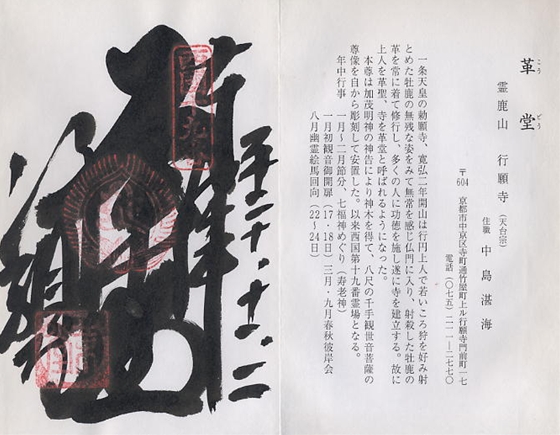 革堂
こうどう
霊鹿山 行願寺(天台宗)
住職 中島湛海
〒604 京都市中京区寺町通竹屋町上ル行願寺門前町一七
電話(〇七五)二一一―二七七〇
一条天皇の勅願寺、寛弘二年開山は行円上人で若いころ狩を好み射
とめた牡鹿の無残な姿をみて無常を感じ仏門に入り、射殺した牡鹿の
革を常に着て修行し、多くの人に功徳を施し遂に寺を建立する。故に
上人を革聖、寺を革堂と呼ばれるようになった。
本尊は加茂明神の神告により神木を得て、八尺の千手観世音菩薩の
尊像を自から彫刻して安置した。以来西国第十九番霊場となる。
年中行事 一月〜二月節分、七福神めぐり(寿老神)
一月初観音御開扉(17・18日)三月・九月春秋彼岸会
八月幽霊絵馬回向(22〜24日)
平二十・十一・二
奉拝